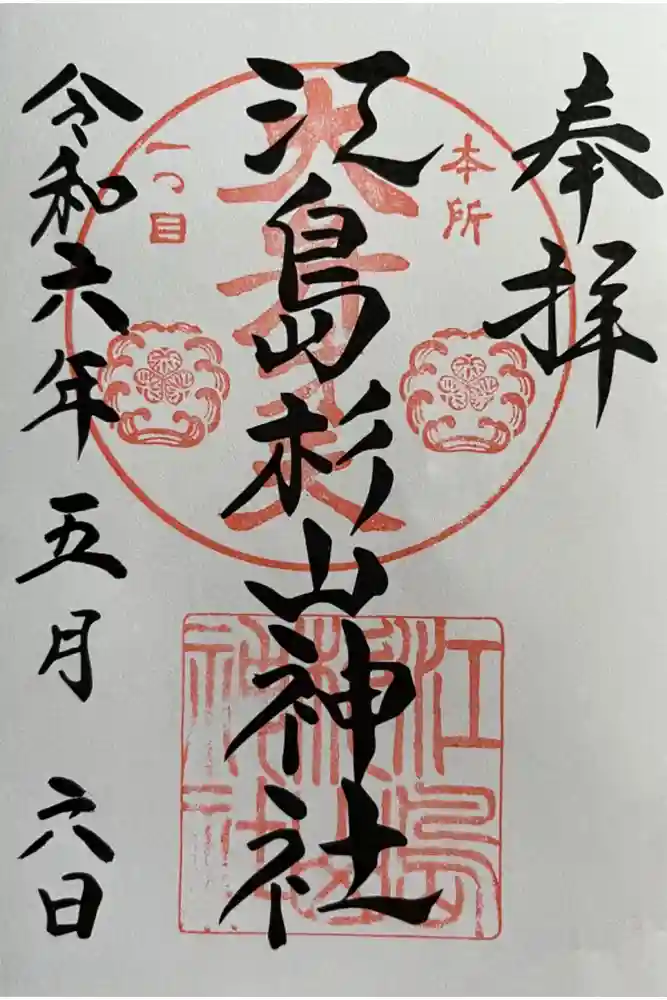 奉拝
本所
一つ目
江島杉山神社
令和六年 五月 六日
江島杉山神社